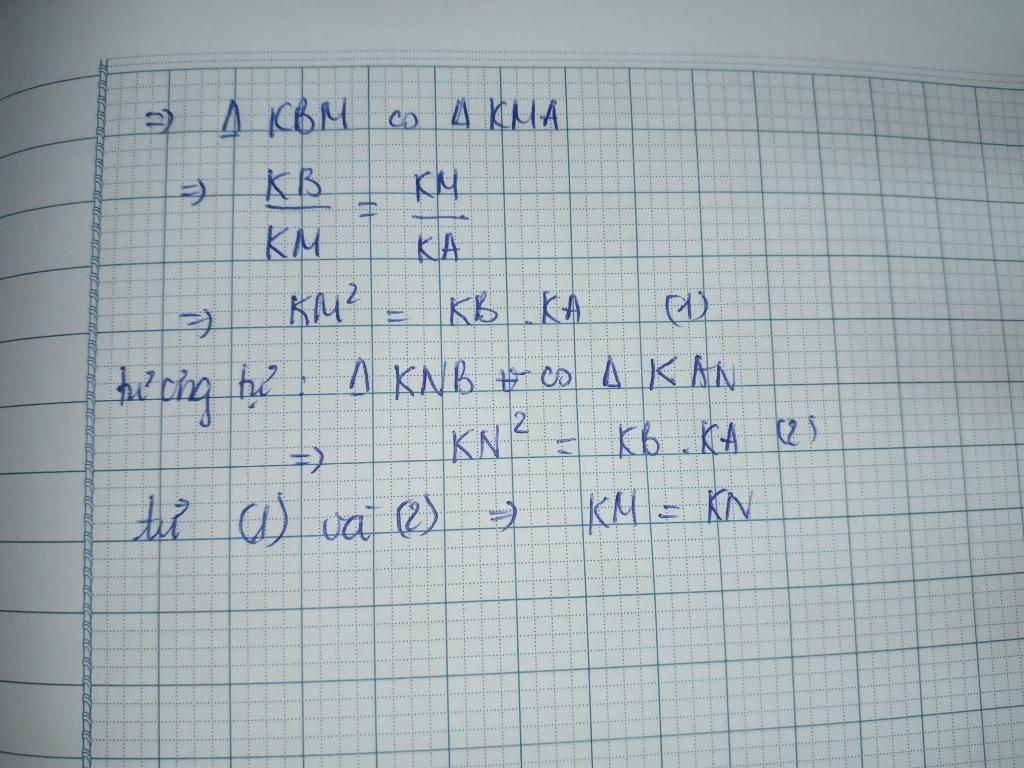 ⇒ Δ KBM ∽ Δ KMA
⇒ KB/KM = KM/KA
⇒ KM² = KB . KA (1)
tương tự : Δ KNB ∽ Δ KAN
⇒ KN² = KB . KA (2)
từ (1) và (2) ⇒ KM = KN